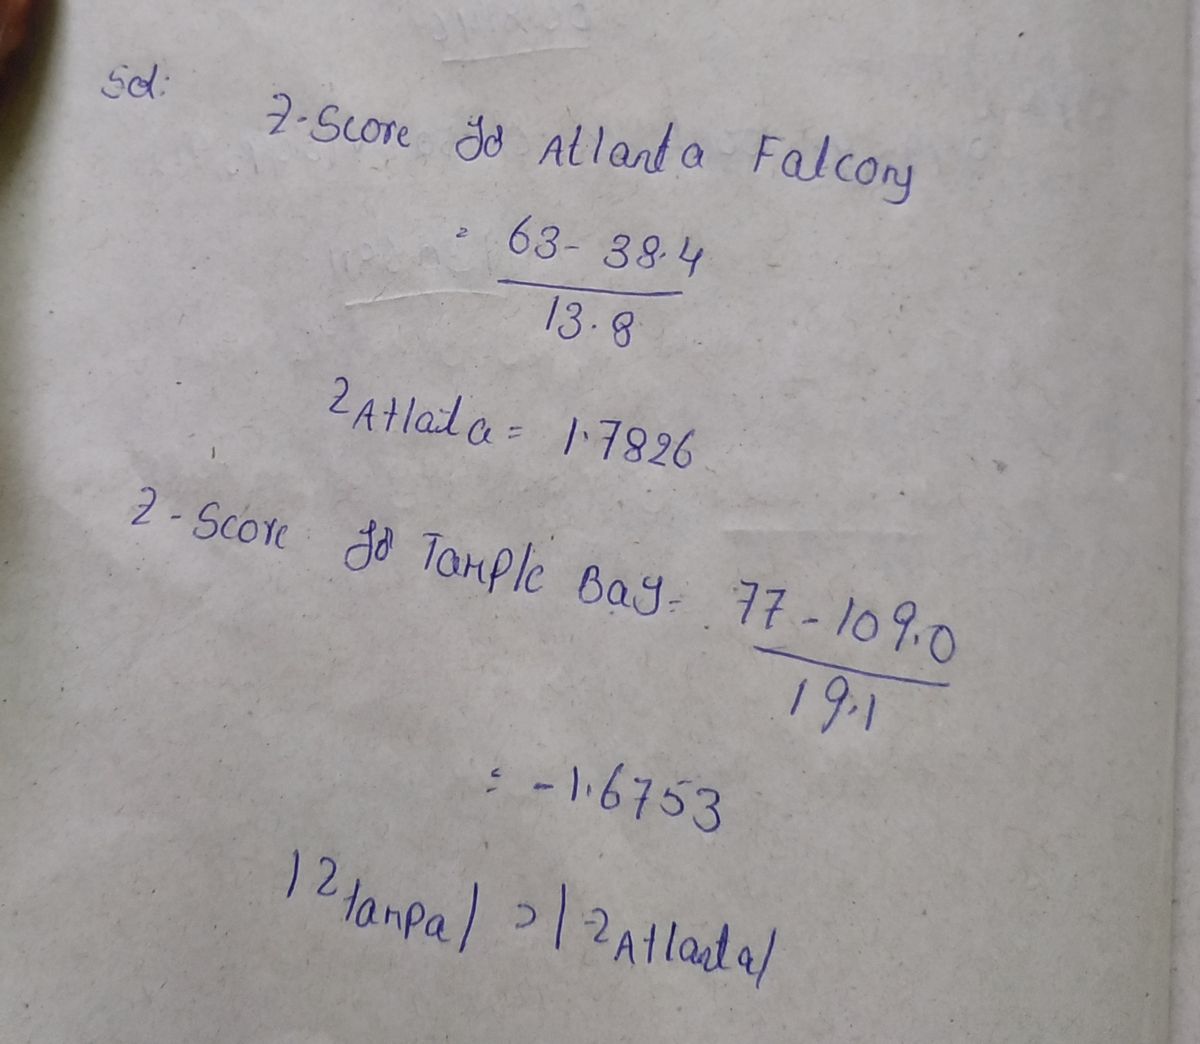 Sol:
Z-Score for Atlanta Falcons
= 63 - 38.4
13.8
Z Atlanta = 1.7826
Z-Score for Tample Bay = 77 - 109.0
19.1
= -1.6753
|Z tampa| > |Z Atlanta|